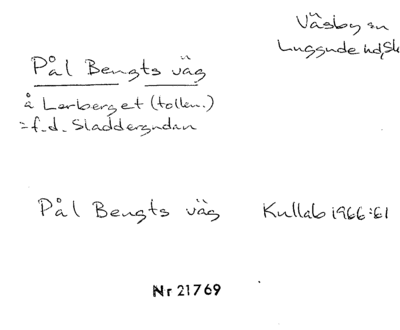 Väsby sn
Luggude hd, Sk
Pål Bengts väg
å Lerberget (tollen.)
= f.d. Sladdergudan
Pål Bengts väg Kullab 1966:61
Nr 21769